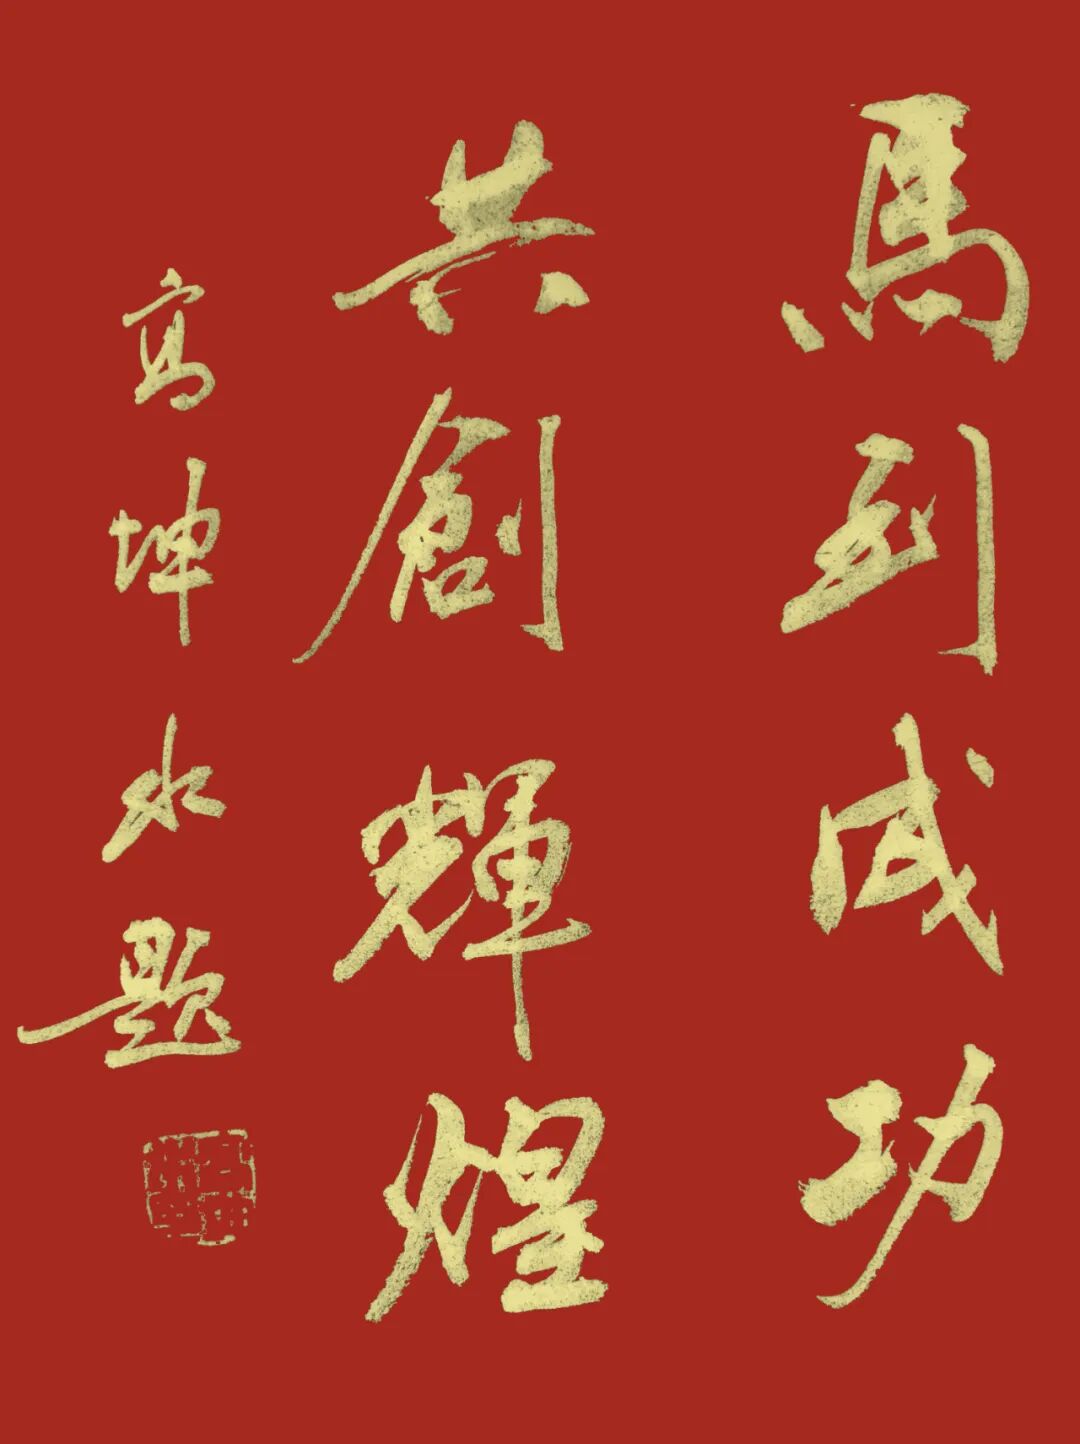 馬到成功
共創輝煌
高坤水题